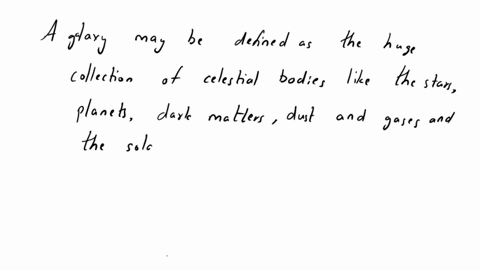 A galaxy may be defined as the huge
collection of celestial bodies like the stars,
planets, dark matters, dust and gases and
the sola